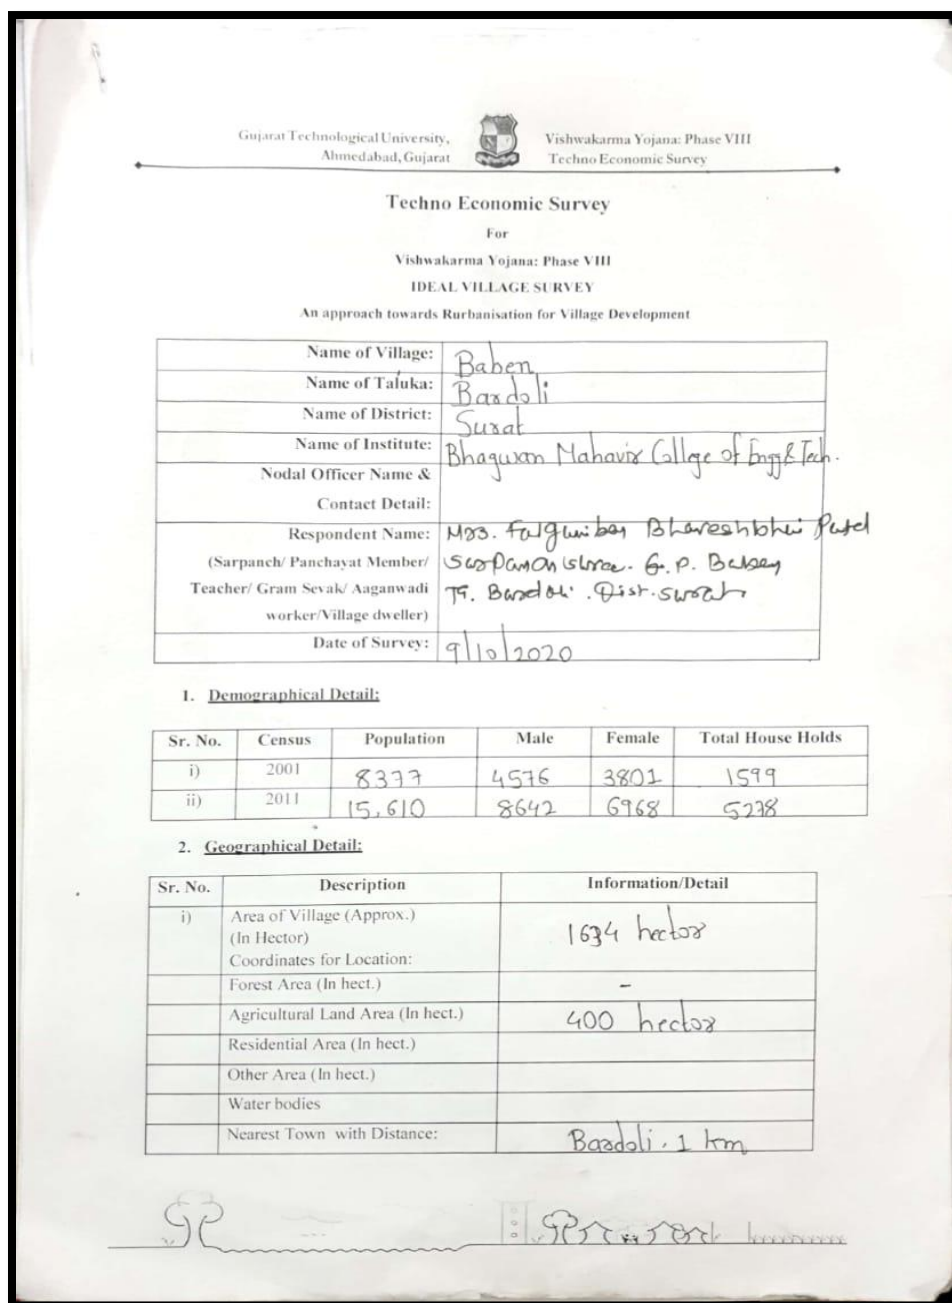 Gujarat Technological University,
Ahmedabad, Gujarat
Vishwakarma Yojana: Phase VIII
Techno Economic Survey
Techno Economic Survey
For
Vishwakarma Yojana: Phase VIII
IDEAL VILLAGE SURVEY
An approach towards Rurbanisation for Village Development
Name of Village: Baben
Name of Taluka: Bardoli
Name of District: Surat
Name of Institute: Bhagwan Mahavir College of Engg & Tech.
Nodal Officer Name &
Contact Detail:
Respondent Name: Mrs. Falguniben Bhaveshbhai Patel
(Sarpanch/ Panchayat Member/ G.P. Baben
Teacher/ Gram Sevak/ Aaganwadi Ta. Bardoli. Dist. Surat
worker/Village dweller)
Date of Survey: 9/10/2020
1. Demographical Detail:
Sr. No. Census Population Male Female Total House Holds
i) 2001 8377 4576 3801 1599
ii) 2011 15,610 8642 6968 5278
2. Geographical Detail:
Sr. No. Description Information/Detail
i) Area of Village (Approx.)
(In Hector) 1634 hector
Coordinates for Location:
Forest Area (In hect.) -
Agricultural Land Area (In hect.) 400 hector
Residential Area (In hect.)
Other Area (In hect.)
Water bodies
Nearest Town with Distance: Bardoli. 1 km